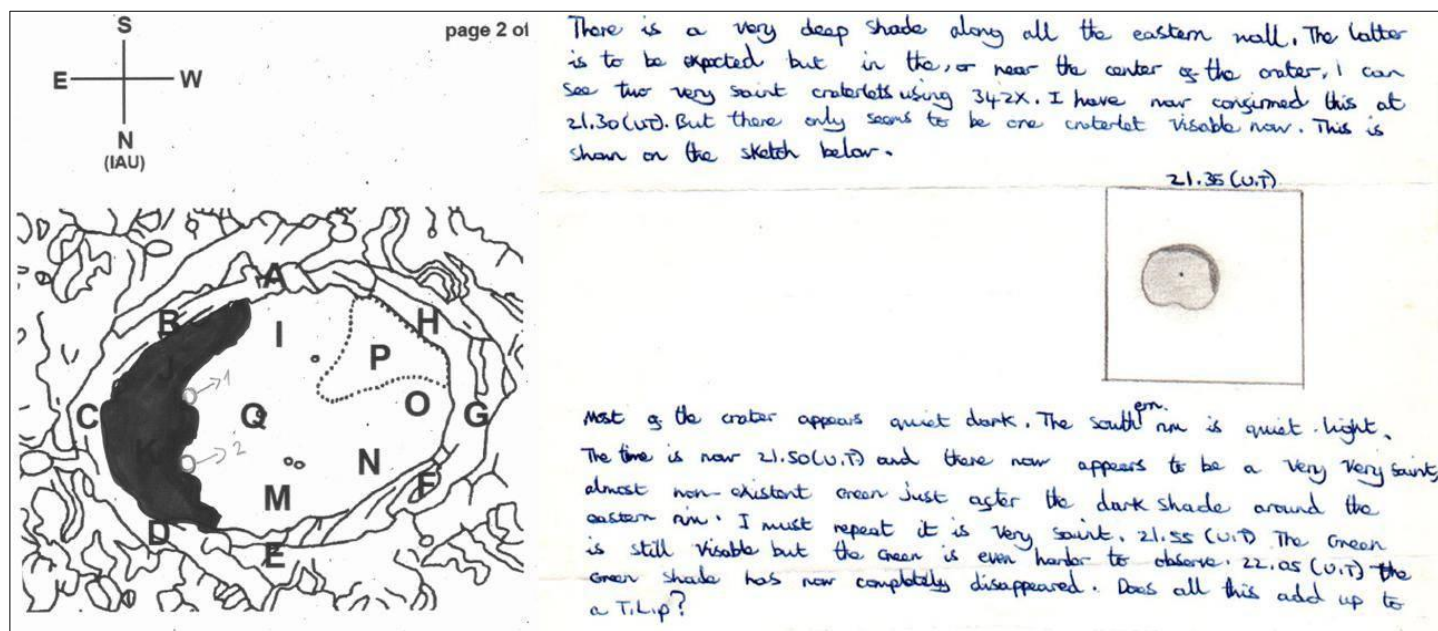 S
page 2 of
E
W
N
(IAU)
A
B
H
I
J
P
1
C
Q
O
G
K
2
N
F
M
D
E
There is a very deep shade along all the eastern wall. The latter
is to be expected but in the, or near the center of the crater, I can
see two very faint craterlets using 342X. I have now confirmed this at
21.30 (UT). But there only seems to be one craterlet visable now. This is
shown on the sketch below.
21.35 (U.T)
Most of the crater appears quiet dark. The southern rim is quiet light.
The time is now 21.50 (U.T) and there now appears to be a very very faint,
almost non-existent green just after the dark shade around the
eastern rim. I must repeat it is very faint. 21.55 (U.T) The green
is still visable but the green is even harder to observe. 22.05 (U.T) the
green shade has now completely disappeared. Does all this add up to
a T.L.P?